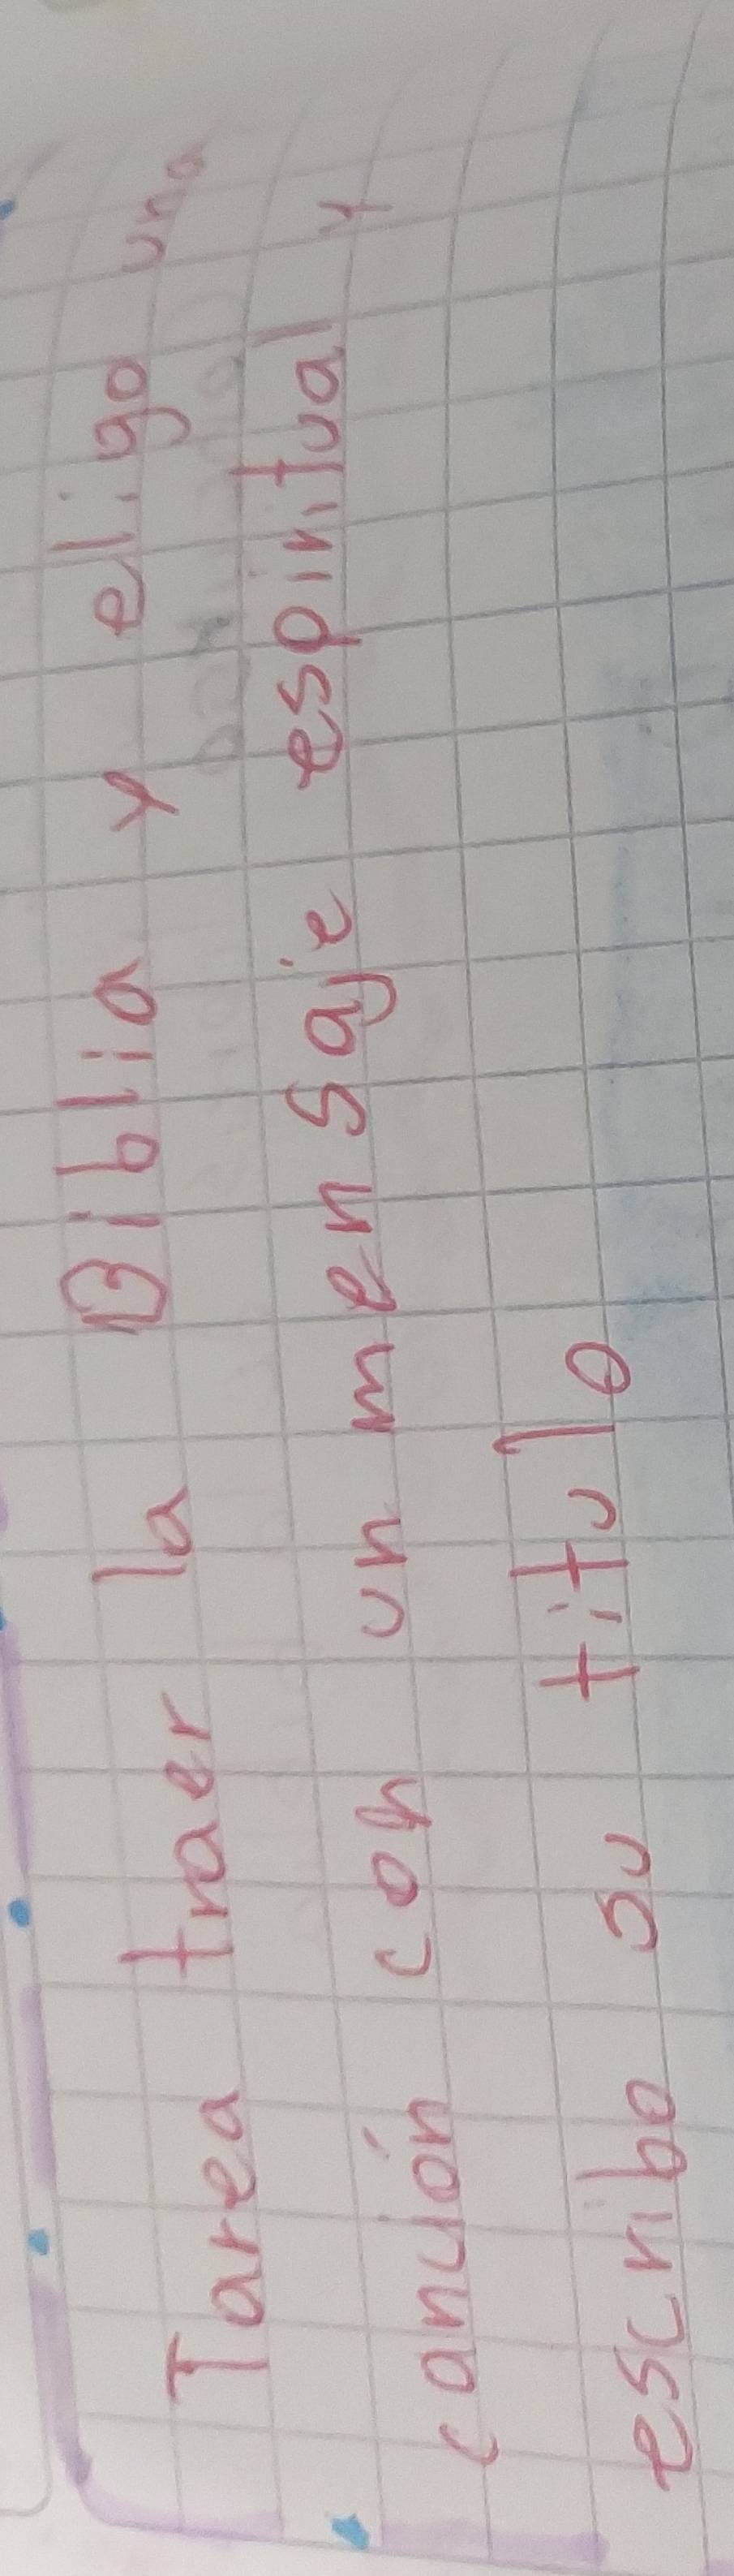 Tarea traer la Biblia y eligo una
canción con un mensaje espiritual y
escribo su titulo